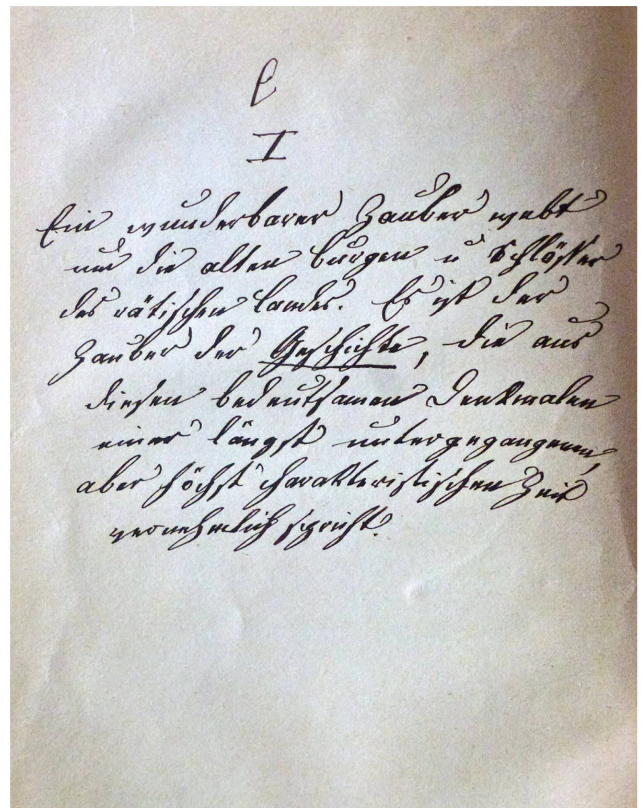 I
Ein wunderbarer Zauber webt
um die alten Burgen u Schlösser
des rätischen Landes. Es ist der
Zauber der Geschichte, die aus
diesen bedeutsamen Denkmalen
einer längst untergegangenen,
aber höchst charakteristischen Zeit
vernehmlich spricht.